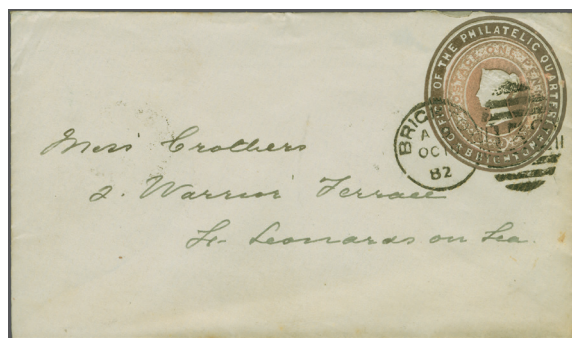 OF THE PHILATELIC QUARTERLY
POSTAGE ONE PENNY
BRIG
A
OC
82
Miss Crothers
2. Warrior Terrace
St. Leonards on Sea.